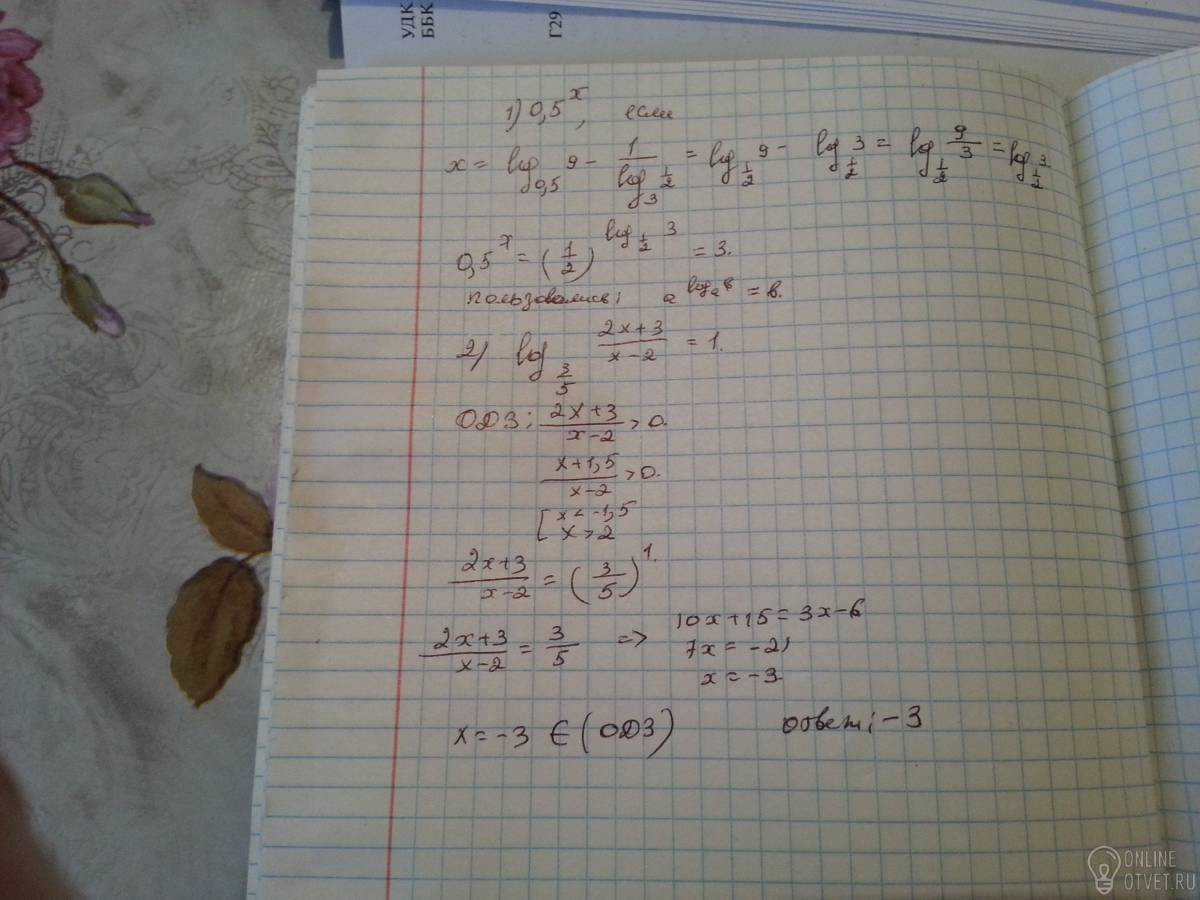 УДК
ББК
Г29
1) 0,5^x, если
x = log_{0,5} 9 - 1/(log_3 1/2) = log_{1/2} 9 - log_{1/2} 3 = log_{1/2} 9/3 = log_{1/2} 3.
0,5^x = (1/2)^{log_{1/2} 3} = 3.
пользовались; a^{log_a в} = в.
2) log_{3/5} (2x+3)/(x-2) = 1.
ОДЗ: (2x+3)/(x-2) > 0.
(x+1,5)/(x-2) > 0.
[ x < -1,5
x > 2
(2x+3)/(x-2) = (3/5)^1.
(2x+3)/(x-2) = 3/5 => 10x+15 = 3x-6
7x = -21
x = -3.
x = -3 ∈ (ОДЗ) ответ: -3
ONLINE
OTVET.RU